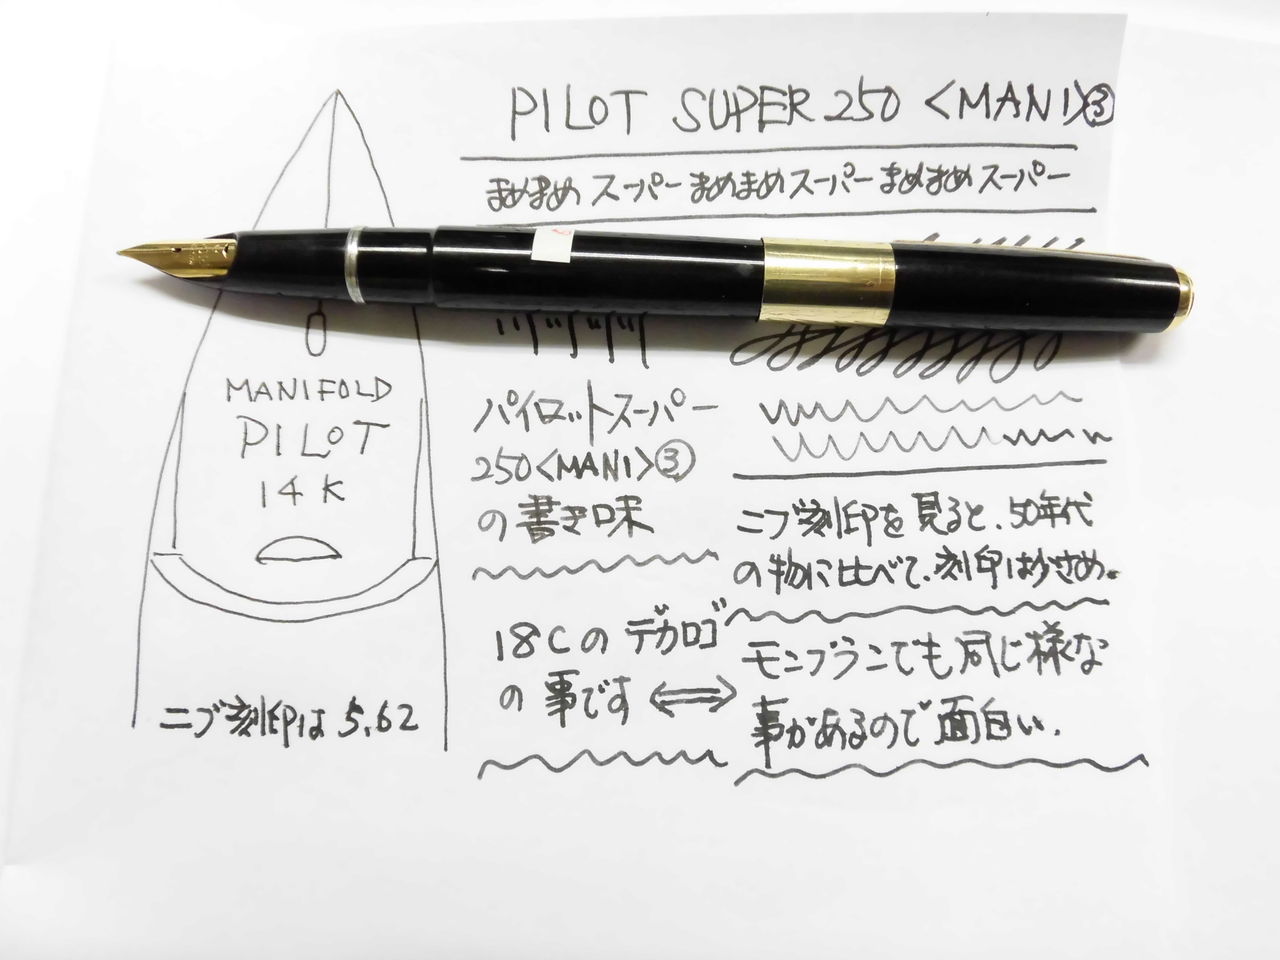 PILOT SUPER 250 <MANI>③
まめまめ スーパー まめまめ スーパー まめまめ スーパー
MANIFOLD
PILOT
14K
ニブ刻印は 5.62
パイロットスーパー
250<MANI>③
の書き味
18Cの デカロゴ
の事です
ニブ刻印を見ると、50年代
の物に比べて、刻印は小さめ。
モンブランでも同じ様な
事があるので面白い.